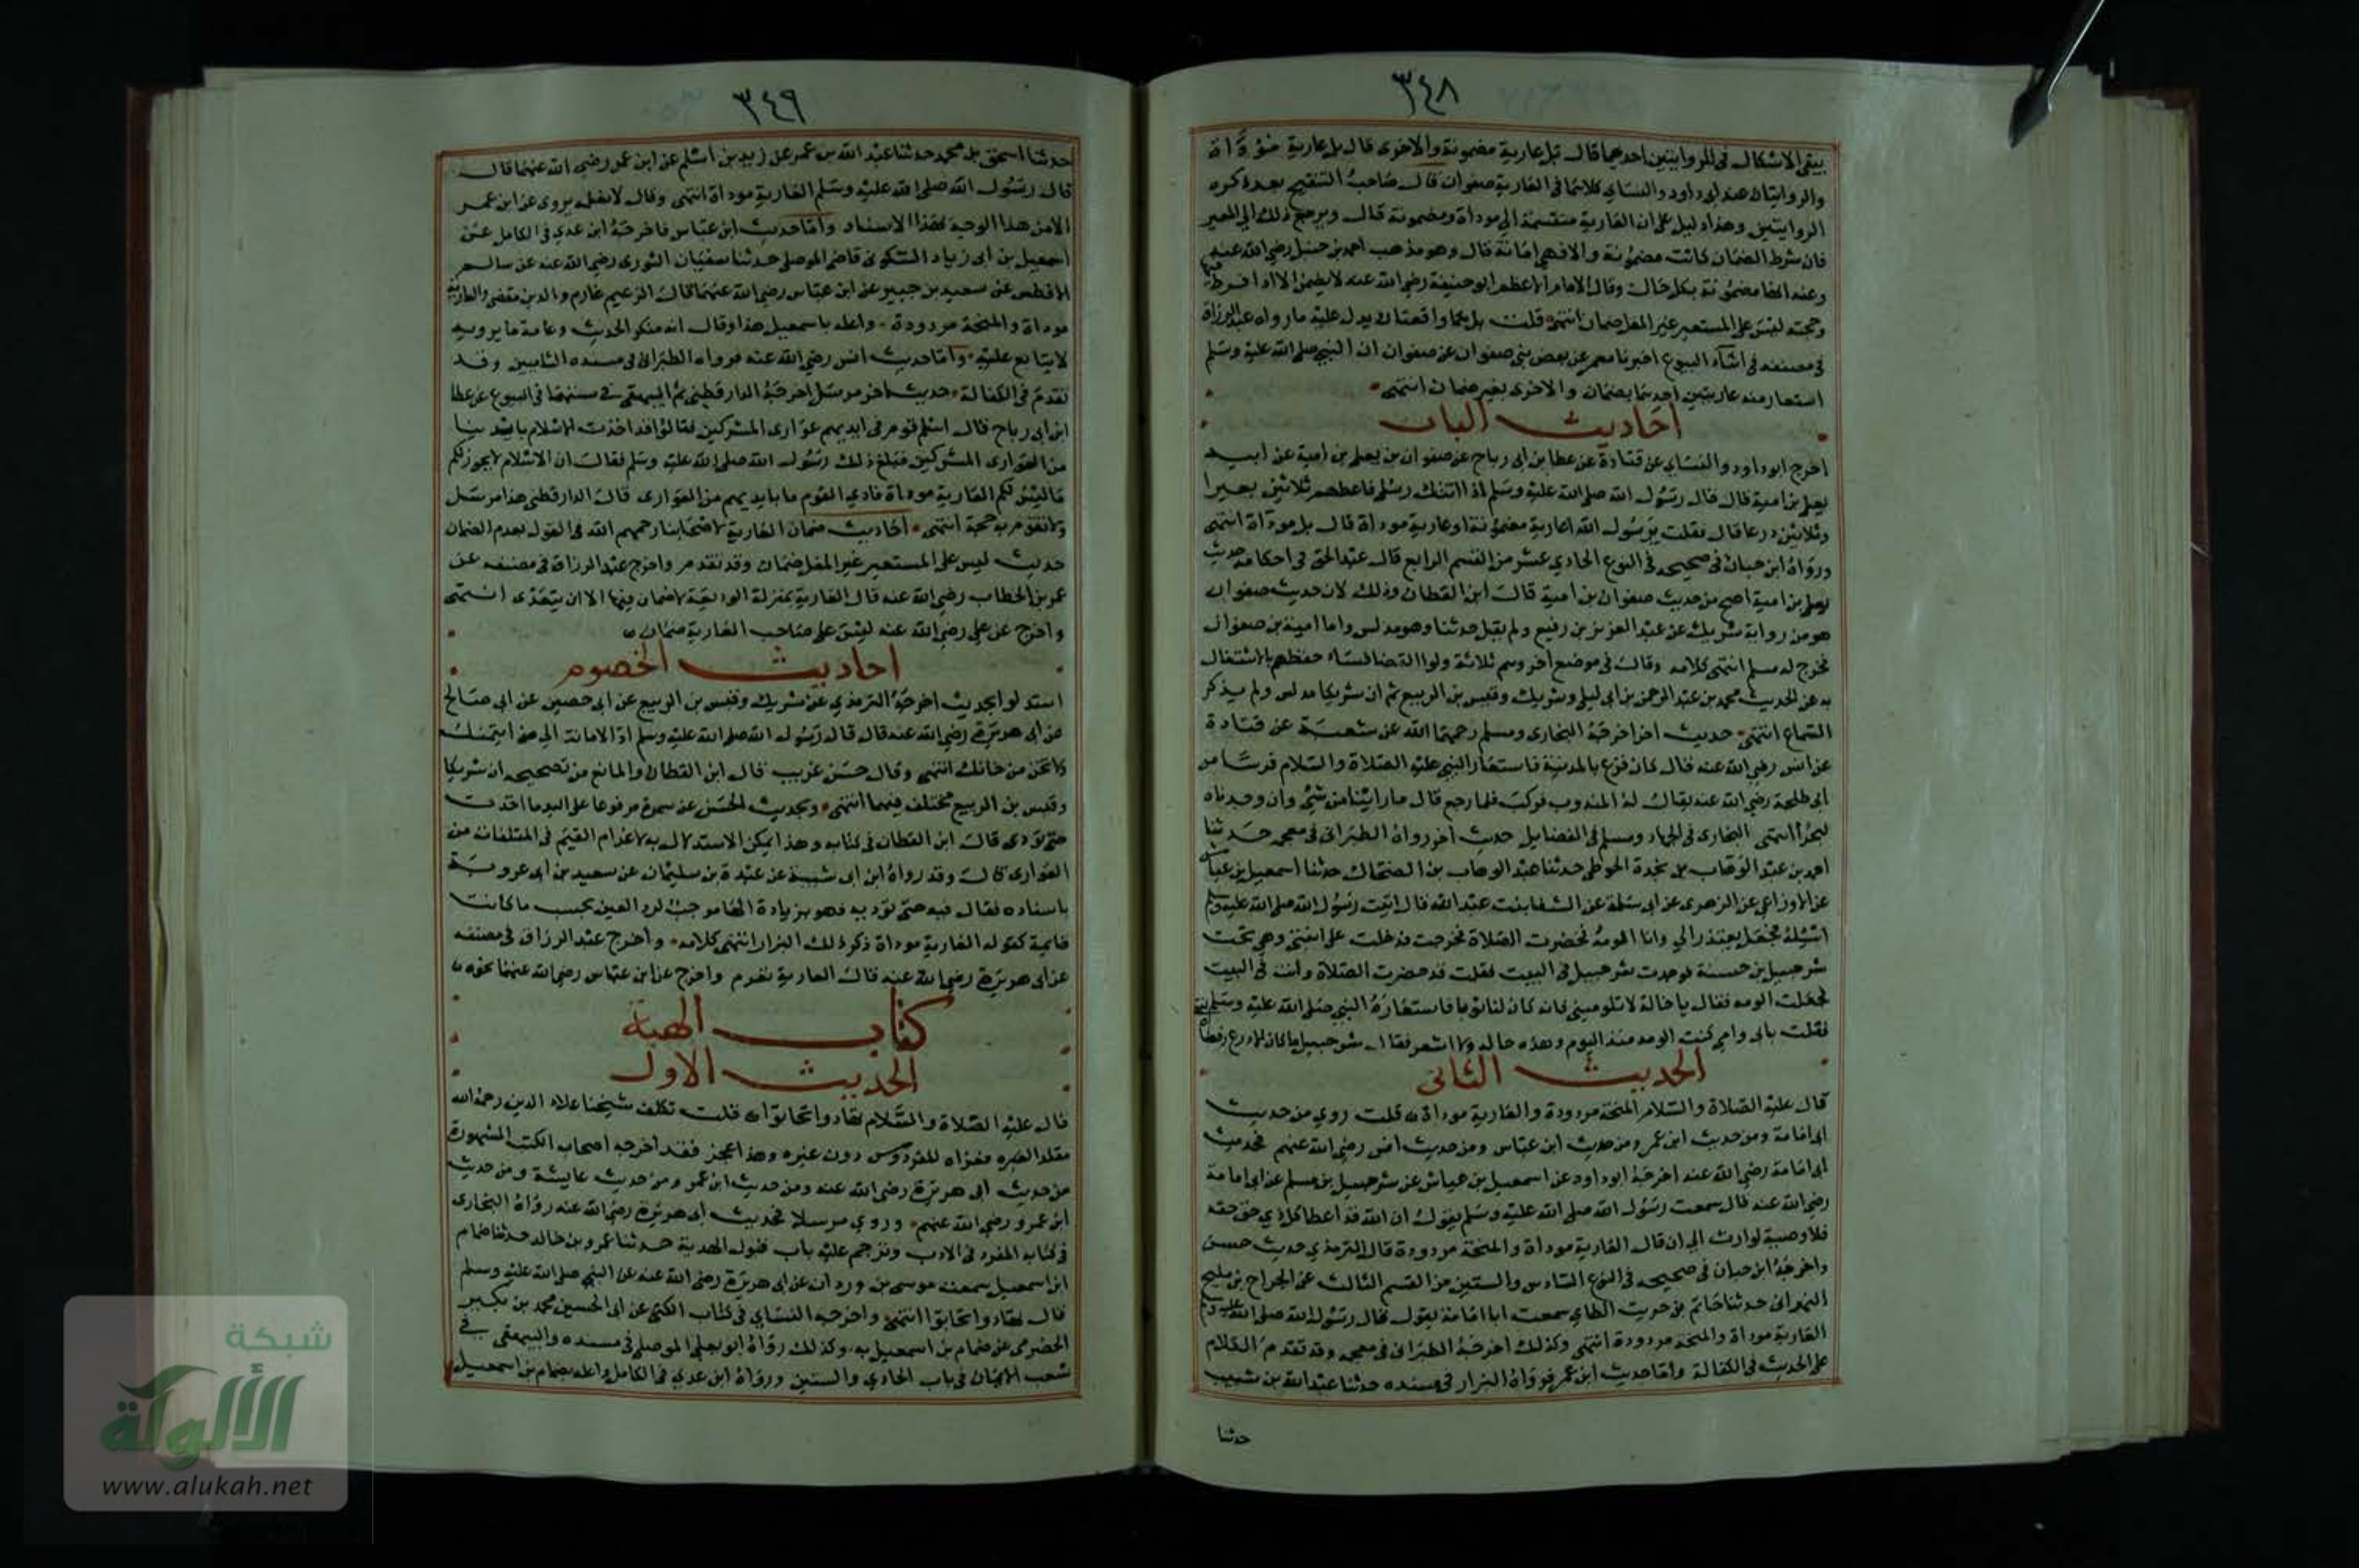 ٣٤٨
يبقى الاشكال في الروايتين احدهما قال بل عارية مضمونة والاخرى قال بل عارية مؤداة
والروايتان عند ابي داود والنساي كلاهما في العارية صفوان قال صاحب التنقيح بعد ذكره
الروايتين وهذا دليل على ان العارية منقسمة الى موداة ومضمونة قال ويرجع ذلك الى المعير
فان شرط الضمان كانت مضمونة والا فهي امانة قال وهو مذهب احمد بن حنبل رضي الله عنه
وعنه انها مضمونة بكل حال وقال الامام الاعظم ابو حنيفة رضي الله عنه لا يضمن الا اذا فرط فيها
وحجته ليس على المستعير غير المغل ضمان انتهى قلت بل هما واقعتان يدل عليه ما رواه عبد الرزاق
في مصنفه في اثناء البيوع اخبرنا معمر عن بعض بني صفوان عن صفوان ان النبي صلى الله عليه وسلم
استعار منه عاريتين احدهما بضمان والاخرى بغير ضمان انتهى
احاديث الباب
اخرج ابو داود والنساي عن قتادة عن عطا بن ابي رباح عن صفوان بن يعلى بن امية عن ابيه
يعلى بن امية قال قال رسول الله صلى الله عليه وسلم اذا اتتك رسلي فاعطهم ثلاثين بعيرا
وثلاثين درعا قال فقلت يرسول الله اعارية مضمونة او عارية موداة قال بل موداة انتهى
ورواه ابن حبان في صحيحه في النوع الحادي عشر من القسم الرابع قال عبد الحق في احكامه حديث
يعلى بن امية اصح من حديث صفوان بن امية قال ابن القطان وذلك لان حديث صفوان
هو من رواية شريك عن عبد العزيز بن رفيع ولم يقل حدثنا وهو مدلس واما امية بن صفوان
فخرج له مسلم انتهى كلامه وقال في موضع اخر وهم ثلاثة ولوا القضا فساء حفظهم بالاشتغال
به عن الحديث محمد بن عبد الرحمن بن ابي ليلى وشريك وقيس بن الربيع ثم ان شريكا مدلس ولم يذكر
السماع انتهى حديث اخر اخرجه البخارى ومسلم رحمهما الله عن شعبة عن قتادة
عن انس رضي الله عنه قال كان فزع بالمدينة فاستعار النبي عليه الصلاة والسلام فرسا من
ابي طلحة رضي الله عنه يقال له المندوب فركب فلما رجع قال ما راينا من شئ وان وجدناه
لبحرا انتهى البخارى في الجهاد ومسلم في الفضايل حديث اخر رواه الطبرانى في معجمه حدثنا
احمد بن عبد الوهاب بن نجدة الحوطي حدثنا عبد الوهاب بن الضحاك حدثنا اسمعيل بن عياش
عن الاوزاعي عن الزهرى عن ابي سلمة عن الشفا بنت عبد الله قال اتيت رسول الله صلى الله عليه وسلم
اسئله فجعل يعتذر الي وانا الومه فحضرت الصلاة فخرجت فدخلت على ابنتي وهي تحت
شرحبيل بن حسنة فوجدت شرحبيل في البيت فقلت قد حضرت الصلاة وانت في البيت
فجعلت الومه فقال يا خالة لا تلوميني فانه كان لنا ثوبا فاستعاره النبي صلى الله عليه وسلم
فقلت بابي وامي كنت الومه منذ اليوم وهذه حاله ولا اشعر فقال شرحبيل ما كان الا درع رقعناه
الحديث الثانى
قال عليه الصلاة والسلام المنحة مردودة والعارية موداة قلت روي من حديث
ابي امامة ومن حديث ابن عمر ومن حديث ابن عباس ومن حديث انس رضي الله عنهم فحديث
ابي امامة رضي الله عنه اخرجه ابو داود عن اسمعيل بن عياش عن شرحبيل بن مسلم عن ابي امامة
رضي الله عنه قال سمعت رسول الله صلى الله عليه وسلم يقول ان الله قد اعطا كل ذي حق حقه
فلا وصية لوارث الى ان قال العارية موداة والمنحة مردودة قال الترمذي حديث حسن
واخرجه ابن حبان في صحيحه في النوع السادس والستين من القسم الثالث عن الجراح بن مليح
البهرانى حدثنا حاتم بن حريث الطاي سمعت ابا امامة يقول قال رسول الله صلى الله عليه وسلم
العارية موداة والمنحة مردودة انتهى وكذلك اخرجه الطبرانى في معجمه وقد تقدم الكلام
على الحديث في الكفالة واما حديث ابن عمر فرواه البزار في مسنده حدثنا عبد الله بن شبيب
حدثنا
٣٤٩
حدثنا اسحق بن محمد حدثنا عبد الله بن عمر عن زيد بن اسلم عن ابن عمر رضي الله عنهما قال
قال رسول الله صلى الله عليه وسلم العارية موداة انتهى وقال لا نعلمه يروى عن ابن عمر
الا من هذا الوجه بهذا الاسناد واما حديث ابن عباس فاخرجه ابن عدي في الكامل عن
اسمعيل بن ابي زياد السكونى قاضى الموصل حدثنا سفيان الثورى رضي الله عنه عن سالم
الافطس عن سعيد بن جبير عن ابن عباس رضي الله عنهما قال الزعيم غارم والدين مقضى والعارية
موداة والمنحة مردودة واعله باسمعيل هذا وقال انه منكر الحديث وعامة ما يرويه
لا يتابع عليه واما حديث انس رضي الله عنه فرواه الطبرانى في مسند الشاميين وقد
تقدم في الكفالة حديث اخر مرسل اخرجه الدارقطنى ثم البيهقي في سننهما في البيوع عن عطا
ابن ابي رباح قال اسلم قوم في ايديهم عوارى المشركين فقالوا قد احذت الاسلام بايدينا
من العوارى المشركين فبلغ ذلك رسول الله صلى الله عليه وسلم فقال ان الاسلام لا يجوز لكم
ما ليس لكم العارية موداة فادي القوم ما بايديهم من العوارى قال الدارقطنى هذا مرسل
ولا تقوم به حجة انتهى احاديث ضمان العارية لاصحابنا رحمهم الله في القول بعدم الضمان
حديث ليس على المستعير غير المغل ضمان وقد تقدم واخرج عبد الرزاق في مصنفه عن
عمر بن الخطاب رضي الله عنه قال العارية بمنزلة الوديعة لا ضمان فيها الا ان يتعدى انتهى
واخرج عن علي رضي الله عنه ليس على صاحب العارية ضمان
احاديث الخصوم
استدلوا بحديث اخرجه الترمذي عن شريك وقيس بن الربيع عن ابي حصين عن ابي صالح
عن ابي هريرة رضي الله عنه قال قال رسول الله صلى الله عليه وسلم اد الامانة الى من ايتمنك
ولا تخن من خانك انتهى وقال حسن غريب قال ابن القطان والمانع من تصحيحه ان شريكا
وقيس بن الربيع مختلف فيهما انتهى وبحديث الحسن عن سمرة مرفوعا على اليد ما اخذت
حتى تؤدى قال ابن القطان في كتابه وهذا يمكن الاستدلال به لاغرام القيم في المتلفات من
العوارى قال وقد رواه ابن ابي شيبة عن عبدة بن سليمان عن سعيد بن ابي عروبة
باسناده فقال فيه حتى تؤديه فهو بزيادة الها موجب لرد العين بحسب ما كانت
قايمة كقوله العارية موداة ذكر ذلك البزار انتهى كلامه واخرج عبد الرزاق في مصنفه
عن ابي هريرة رضي الله عنه قال العارية تغرم واخرج عن ابن عباس رضي الله عنهما نحوه
كتاب الهبة
الحديث الاول
قال عليه الصلاة والسلام تهادوا تحابوا قلت تكلف شيخنا علاء الدين رحمه الله
مقلد الغيره فعزاه للفردوس دون غيره وهذا عجز فقد اخرجه اصحاب الكتب المشهورة
من حديث ابي هريرة رضي الله عنه ومن حديث ابن عمر ومن حديث عايشة ومن حديث
ابن عمرو رضي الله عنهم وروي مرسلا فحديث ابي هريرة رضي الله عنه رواه البخارى
في كتابه المفرد في الادب وترجم عليه باب قبول الهدية حدثنا عمرو بن خالد حدثنا ضمام
ابن اسمعيل سمعت موسى بن وردان عن ابي هريرة رضي الله عنه عن النبي صلى الله عليه وسلم
قال تهادوا تحابوا انتهى واخرجه النساي في كتاب الكنى عن ابي الحسين محمد بن بكير
الحضرمي عن ضمام بن اسمعيل به وكذلك رواه ابو يعلى الموصلى في مسنده والبيهقى في
شعب الايمان في باب الحادي والستين ورواه ابن عدي في الكامل واعله بضمام بن اسمعيل
شبكة
الألوكة
www.alukah.net